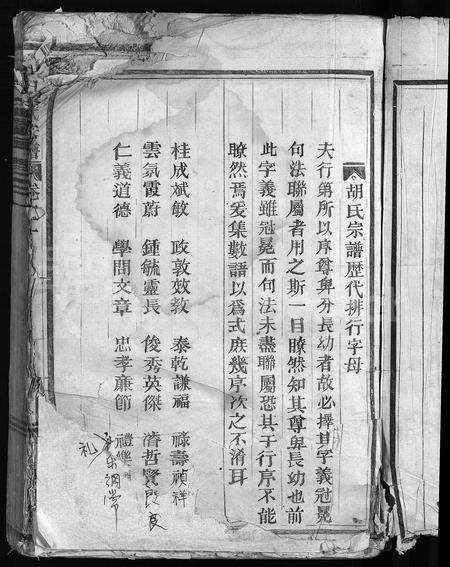 胡氏宗譜歷代排行字母
夫行第所以序尊卑分長幼者故必擇其字義冠冕
句法聯屬者用之斯一目瞭然知其尊卑長幼也前
此字義雖冠冕而句法未盡聯屬恐其于行序不能
瞭然焉爰集數語以爲式庶幾序次之不淆耳
桂成斌敏 政敦效敎 泰乾謙福 祿壽禎祥
雲氣霞蔚 鍾毓靈長 俊秀英傑 濬哲賢良
仁義道德 學問文章 忠孝廉節 禮樂綱常
礼